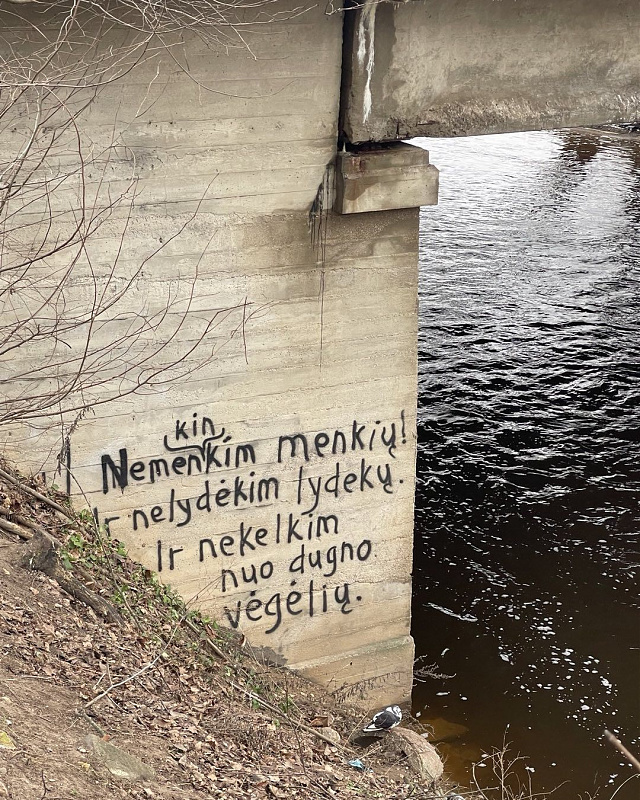 kin
Nemenkim menkių!
Ir nelydėkim lydekų.
Ir nekelkim
nuo dugno
vėgėlių.